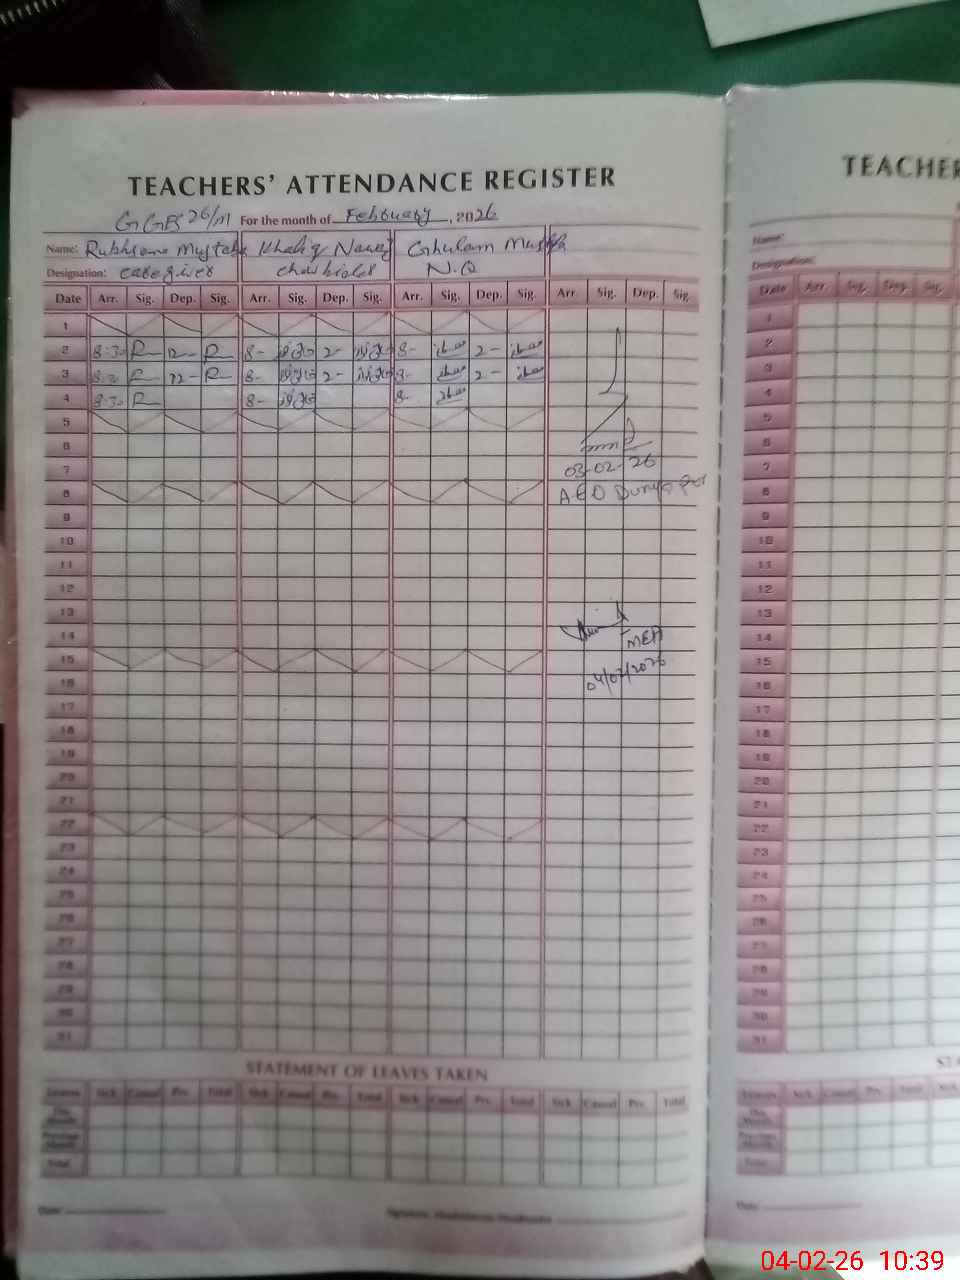 TEACHERS' ATTENDANCE REGISTER
26/M For the month of February, 2026
Name: Mustafa Khaliq Nawaz Ghulam
Designation: caregiver N.Q
Date Arr. Sig. Dep. Sig. Arr. Sig. Dep. Sig. Arr. Sig. Dep. Sig. Arr. Sig. Dep. Sig.
1
2 8:30 12- 8- 2- 8- 2-
3 8:30 12- 8- 2- 8- 2-
4 8:30 8- 8-
5
6
7
03-02-26
8
AEO
9
10
11
12
13
14
MEA
15
04/02/2026
16
17
18
19
20
21
22
23
24
25
26
27
28
29
30
31
STATEMENT OF LEAVES TAKEN
Leaves Sick Casual Prv. Total Sick Casual Prv. Total Sick Casual Prv. Total Sick Casual Prv. Total
This Month
Previous Month
Total
Date
TEACHER
Name:
Designation:
Date Arr. Sig. Dep. Sig.
1
2
3
4
5
6
7
8
9
10
11
12
13
14
15
16
17
18
19
20
21
22
23
24
25
26
27
28
29
30
31
Leaves Sick Casual Prv. Total Sick
This Month
Previous Month
Total
Date
04-02-26 10:39